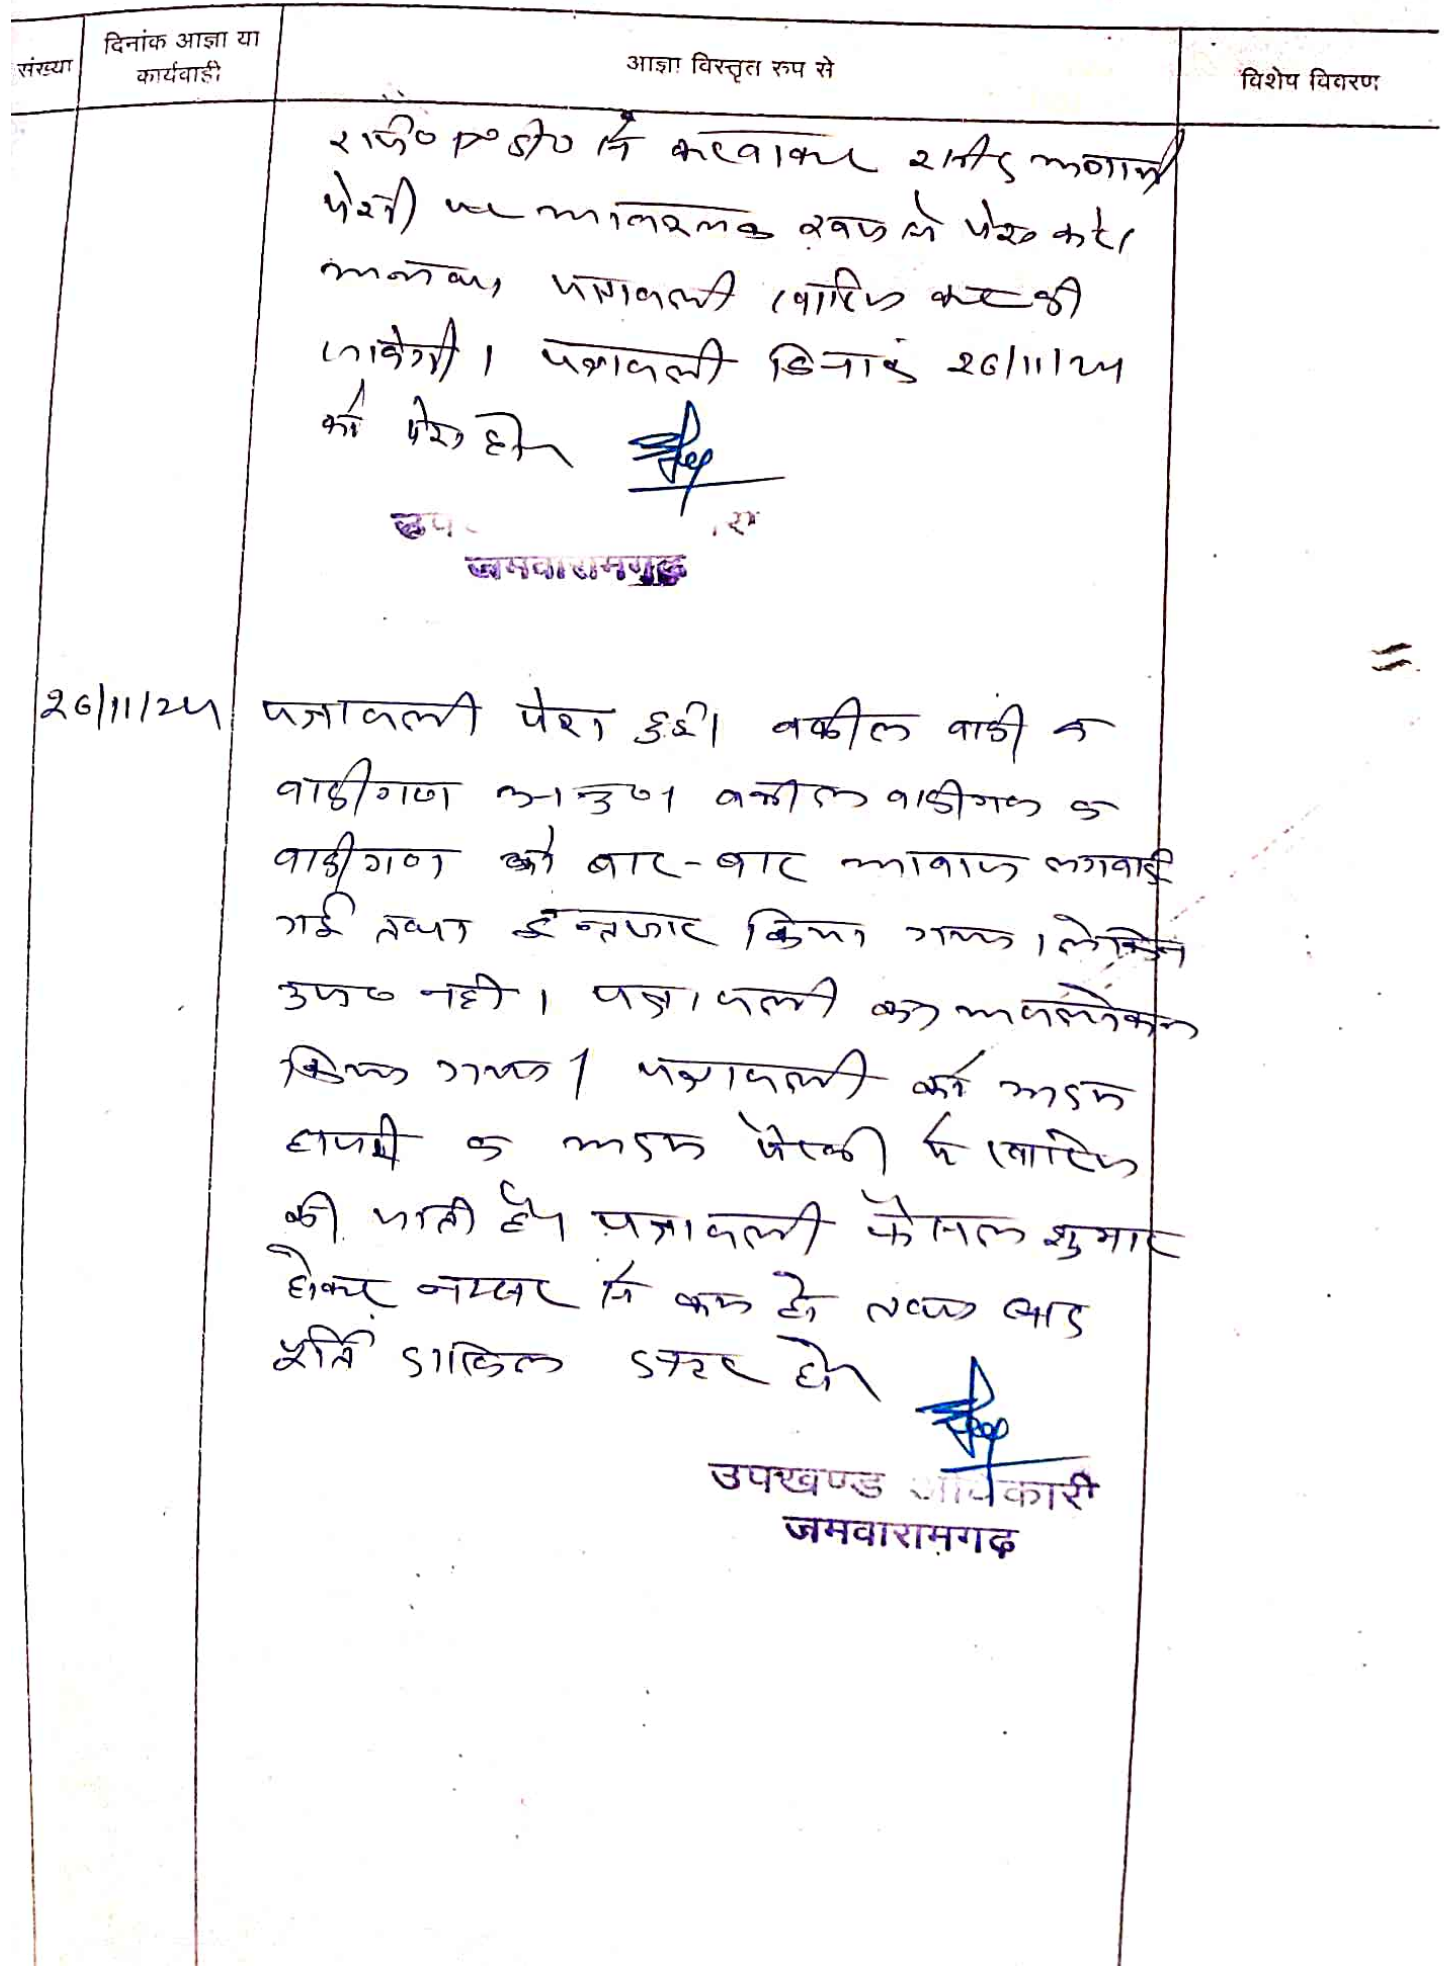 संख्या
दिनांक आज्ञा या
कार्यवाही
आज्ञा विस्तृत रुप से
विशेष विवरण
रजि० ए०डी० से करवाकर रसीद आगामी
पेशी पर आवश्यक रूप से पेश करे।
अन्यथा पत्रावली खारिज कर दी
जावेगी। पत्रावली दिनांक 26/11/24
को पेश हो।
उप
जमवारामगढ़
26/11/24
पत्रावली पेश हुई। वकील वादी व
वादीगण अनु०। वकील वादीगण व
वादीगण को बार-बार आवाज लगवाई
गई तथा इन्तजार किया गया। लेकिन
उप० नहीं। पत्रावली का अवलोकन
किया गया। पत्रावली को अदम
हाजरी व अदम पैरवी मे खारिज
की जाती है। पत्रावली फैसल शुमार
होकर नम्बर से कम हो तथा बाद
पूर्ति दाखिल दफ्तर हो।
उपखण्ड अधिकारी
जमवारामगढ़